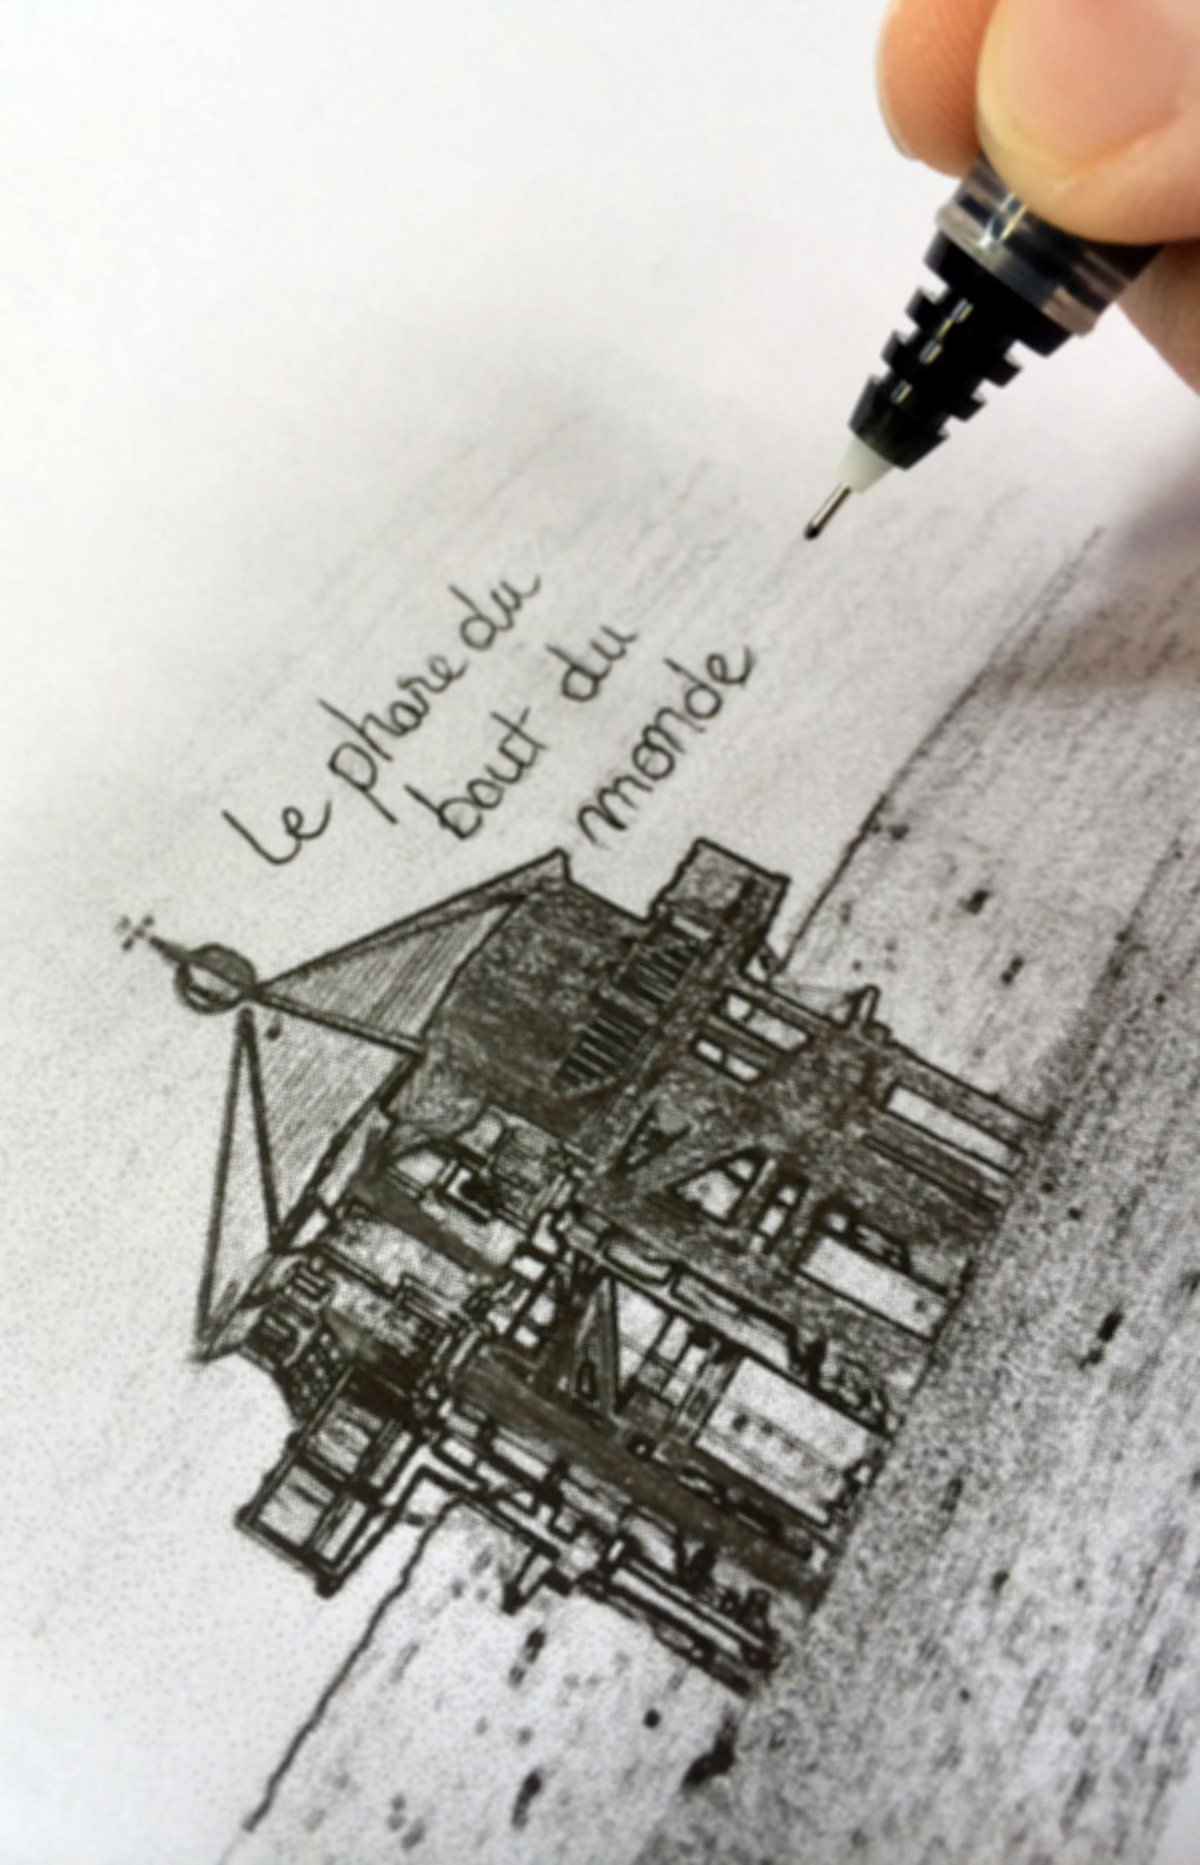 Le phare du
bout du
monde